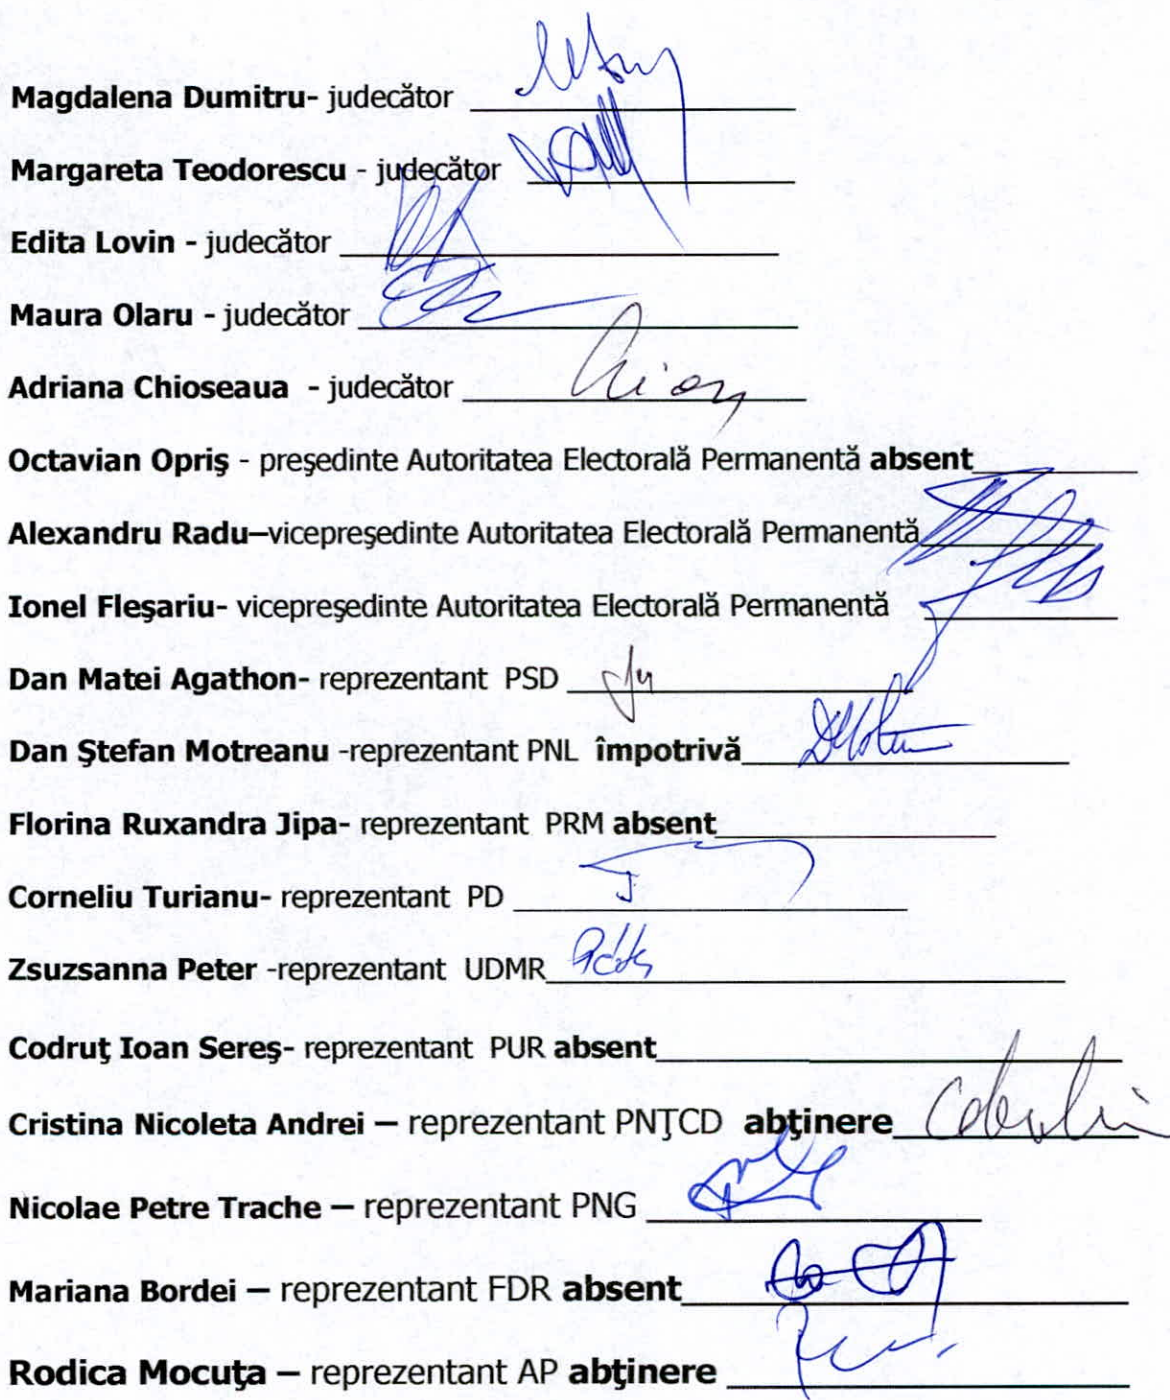 Magdalena Dumitru- judecător
Margareta Teodorescu - judecător
Edita Lovin - judecător
Maura Olaru - judecător
Adriana Chioseaua - judecător
Octavian Opriş - preşedinte Autoritatea Electorală Permanentă absent
Alexandru Radu–vicepreşedinte Autoritatea Electorală Permanentă
Ionel Fleşariu- vicepreşedinte Autoritatea Electorală Permanentă
Dan Matei Agathon- reprezentant PSD
Dan Ştefan Motreanu -reprezentant PNL împotrivă
Florina Ruxandra Jipa- reprezentant PRM absent
Corneliu Turianu- reprezentant PD
Zsuzsanna Peter -reprezentant UDMR
Codruţ Ioan Sereş- reprezentant PUR absent
Cristina Nicoleta Andrei – reprezentant PNŢCD abţinere
Nicolae Petre Trache – reprezentant PNG
Mariana Bordei – reprezentant FDR absent
Rodica Mocuţa – reprezentant AP abţinere